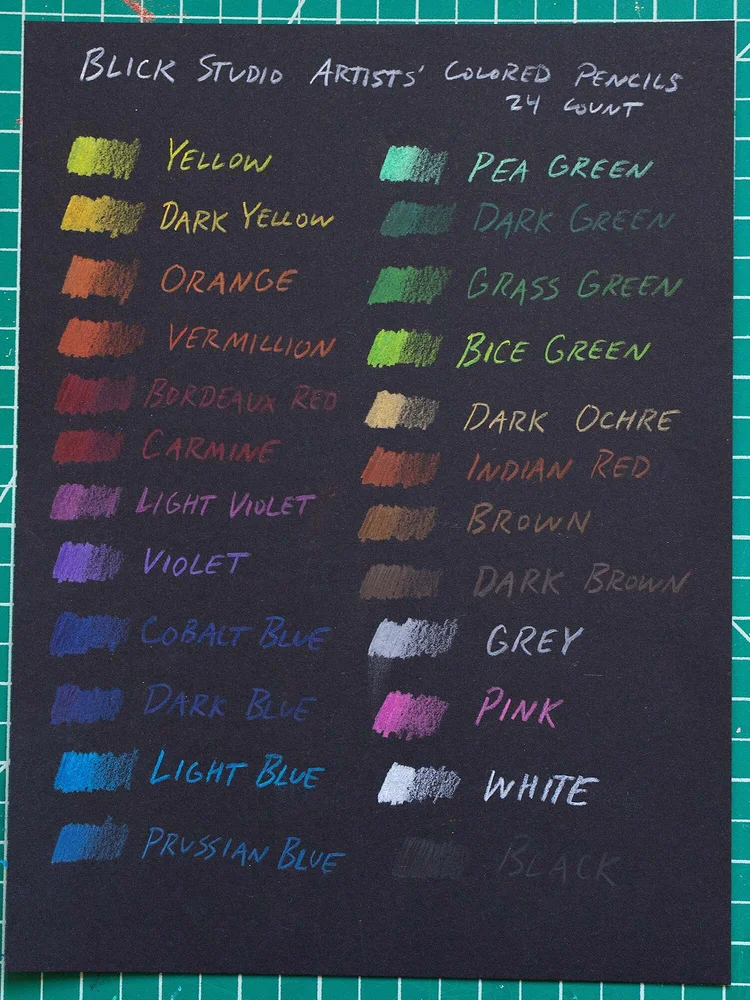 BLICK STUDIO ARTISTS' COLORED PENCILS
24 COUNT
YELLOW
DARK YELLOW
ORANGE
VERMILLION
BORDEAUX RED
CARMINE
LIGHT VIOLET
VIOLET
COBALT BLUE
DARK BLUE
LIGHT BLUE
PRUSSIAN BLUE
PEA GREEN
DARK GREEN
GRASS GREEN
BICE GREEN
DARK OCHRE
INDIAN RED
BROWN
DARK BROWN
GREY
PINK
WHITE
BLACK